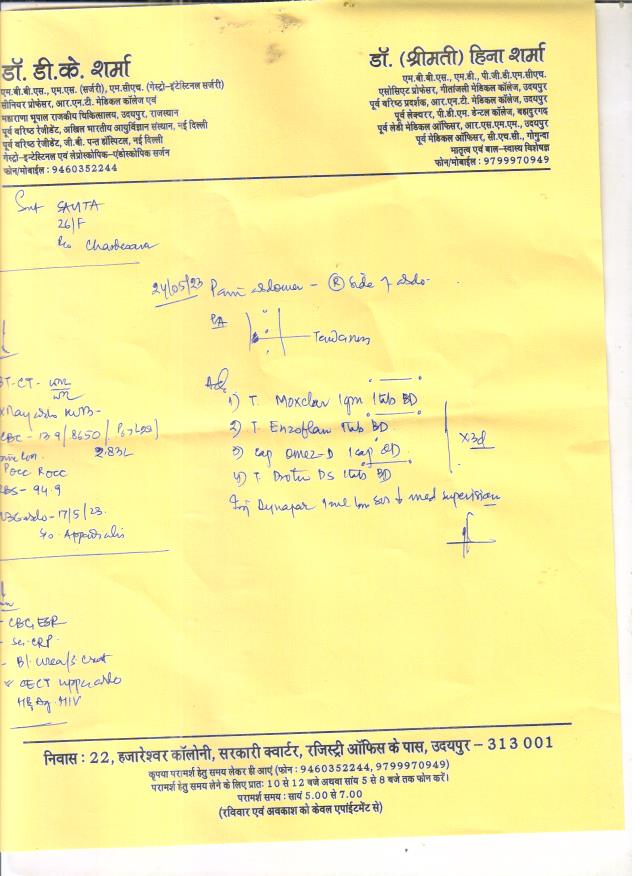 डॉ. डी.के. शर्मा
एम.बी.बी.एस., एम.एस. (सर्जरी), एम.सीएच. (गेस्ट्रो-इंटेस्टिनल सर्जरी)
सीनियर प्रोफेसर, आर.एन.टी. मेडिकल कॉलेज एवं
महाराणा भूपाल राजकीय चिकित्सालय, उदयपुर, राजस्थान
पूर्व वरिष्ठ रेजीडेंट, अखिल भारतीय आयुर्विज्ञान संस्थान, नई दिल्ली
पूर्व वरिष्ठ रेजीडेंट, जी.बी. पन्त हॉस्पिटल, नई दिल्ली
गेस्ट्रो-इन्टेस्टिनल एवं लेप्रोस्कोपिक-एंडोस्कोपिक सर्जन
फोन/मोबाईल : 9460352244
डॉ. (श्रीमती) हिना शर्मा
एम.बी.बी.एस., एम.डी., पी.जी.डी.एम.सीएच.
एसोसिएट प्रोफेसर, गीतांजली मेडिकल कॉलेज, उदयपुर
पूर्व वरिष्ठ प्रदर्शक, आर.एन.टी. मेडिकल कॉलेज, उदयपुर
पूर्व लेक्चरर, पी.डी.एम. डेन्टल कॉलेज, बहादुरगढ़
पूर्व लेडी मेडिकल ऑफिसर, आर.एस.एम.एम., उदयपुर
पूर्व मेडिकल ऑफिसर, सी.एच.सी., गोगुन्दा
मातृत्व एवं बाल-स्वास्थ्य विशेषज्ञ
फोन/मोबाईल : 9799970949
Smt
26/F
R/o
24/05/23 Pain abdomen - (R) side of abdo.
P/A
Tenderness
Adv
1) T. Moxclav 1gm 1tab BD
2) T. Enzoflam 1tab BD
3) Cap Omez-D 1cap OD
4) T. Drotin DS 1tab BD
X3d
Inj Dynapar 1ml Im sos med supervision
BT-CT-
Xray abdo KUB-
CBC - 13.9/8650/
2.83L
RBS - 94.9
USG abdo - 17/5/23.
- CBC, ESR
- Se. CRP.
- Bl. Urea/S. Creat
CECT upper abdo
HBsAg. HIV
निवास : 22, हजारेश्वर कॉलोनी, सरकारी क्वार्टर, रजिस्ट्री ऑफिस के पास, उदयपुर - 313 001
कृपया परामर्श हेतु समय लेकर ही आएं (फोन : 9460352244, 9799970949)
परामर्श हेतु समय लेने के लिए प्रातः 10 से 12 बजे अथवा सांय 5 से 8 बजे तक फोन करें।
परामर्श समय : सायं 5.00 से 7.00
(रविवार एवं अवकाश को केवल एपांईटमेंट से)